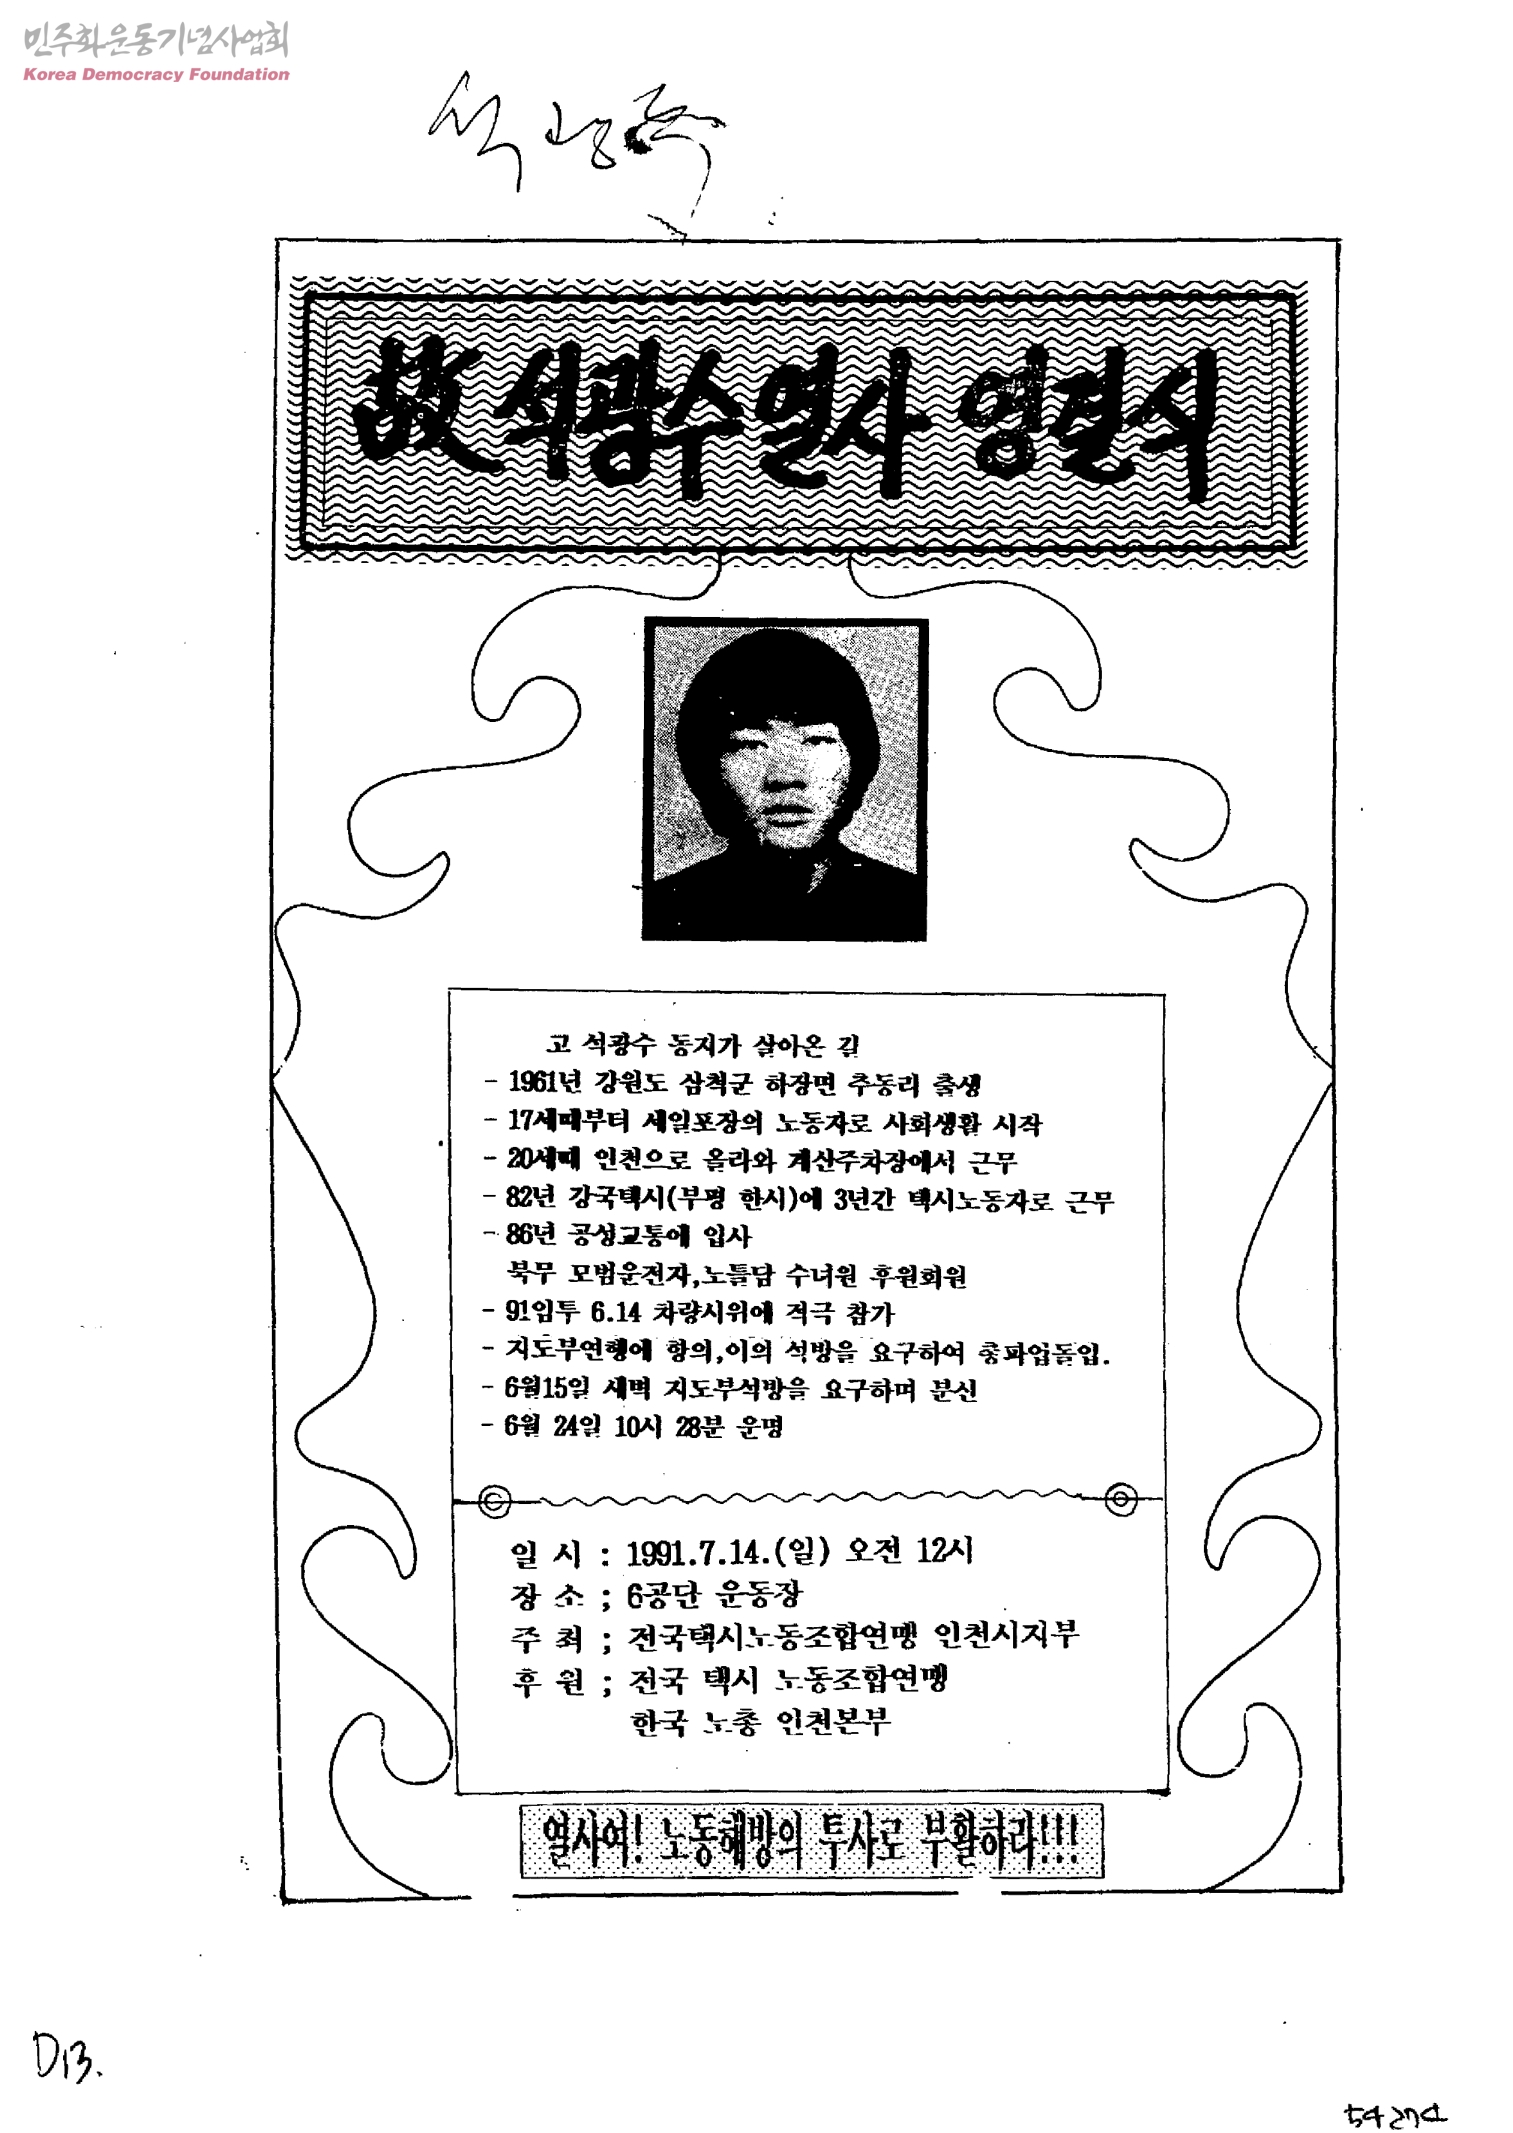 민주화운동기념사업회
Korea Democracy Foundation
석광수
故 석광수열사 영결식
고 석광수 동지가 살아온 길
- 1961년 강원도 삼척군 하장면 추동리 출생
- 17세때부터 세일포장의 노동자로 사회생활 시작
- 20세때 인천으로 올라와 계산주차장에서 근무
- 82년 강국택시(부평 한시)에 3년간 택시노동자로 근무
- 86년 공성교통에 입사
북무 모범운전자,노틀담 수녀원 후원회원
- 91임투 6.14 차량시위에 적극 참가
- 지도부연행에 항의,이의 석방을 요구하여 총파업돌입.
- 6월15일 새벽 지도부석방을 요구하며 분신
- 6월 24일 10시 28분 운명
일 시 : 1991.7.14.(일) 오전 12시
장 소 ; 6공단 운동장
주 최 ; 전국택시노동조합연맹 인천시지부
후 원 ; 전국 택시 노동조합연맹
한국 노총 인천본부
열사여! 노동해방의 투사로 부활하라!!!
D13.